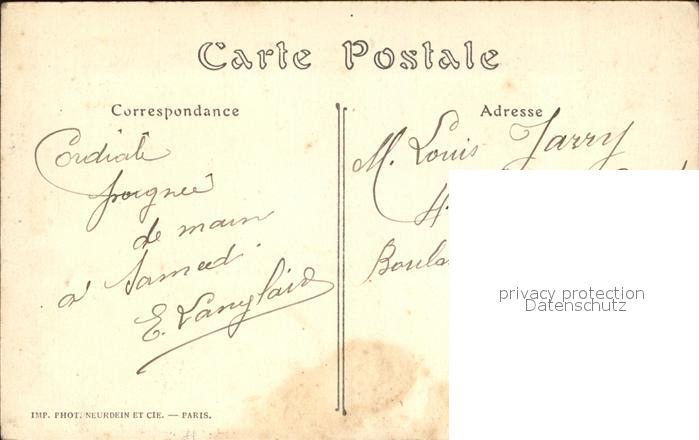 Carte Postale
Correspondance
Cordiale
poignée
de main
à Samedi.
E. Langlais
Adresse
M. Louis Jarry
privacy protection
Datenschutz
IMP. PHOT. NEURDEIN ET CIE. — PARIS.